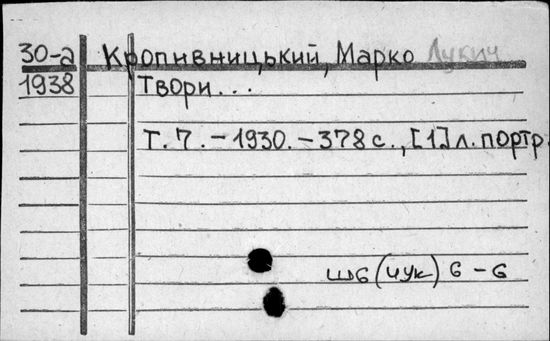 30-а Кропивницький, Марко Лукич
1938 Твори...
Т. 7. – 1930. – 378 с., [1] л. портр.
шб (чук) 6 – 6